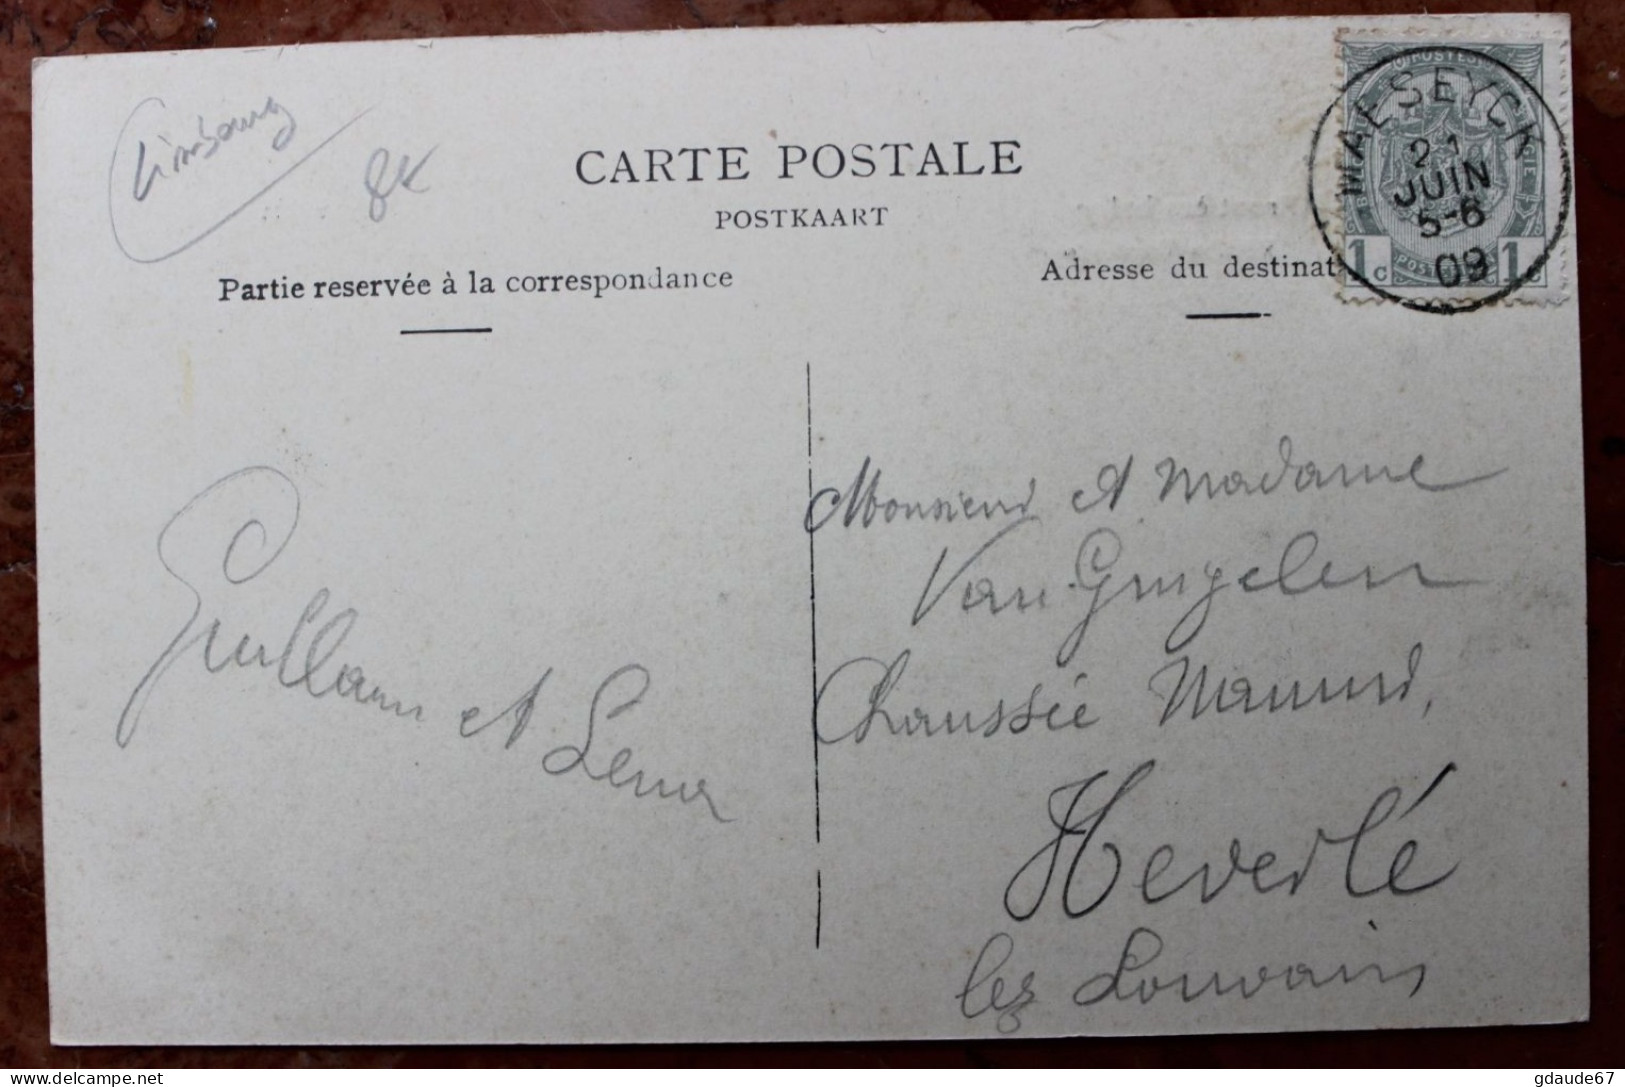 Limbourg
8€
CARTE POSTALE
POSTKAART
Partie reservée à la correspondance
Adresse du destinat
MAESEYCK
21
JUIN
5-6
09
POSTES
1c 1c
Monsieur et Madame
Van
Chaussée Namur,
Heverlé
lez Louvain,
Guillaum et Lena
gdaude67
delcampe.net